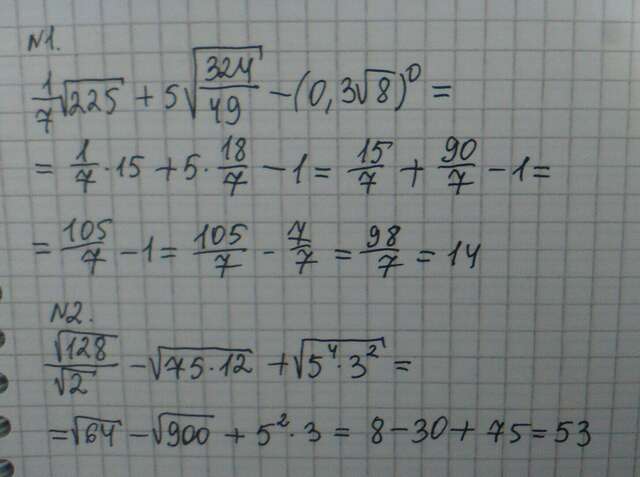 N1.
1/7 √225 + 5√(324/49) − (0,3√8)⁰ =
= 1/7 · 15 + 5 · 18/7 − 1 = 15/7 + 90/7 − 1 =
= 105/7 − 1 = 105/7 − 7/7 = 98/7 = 14
N2.
√128/√2 − √(75·12) + √(5⁴·3²) =
= √64 − √900 + 5²·3 = 8 − 30 + 75 = 53